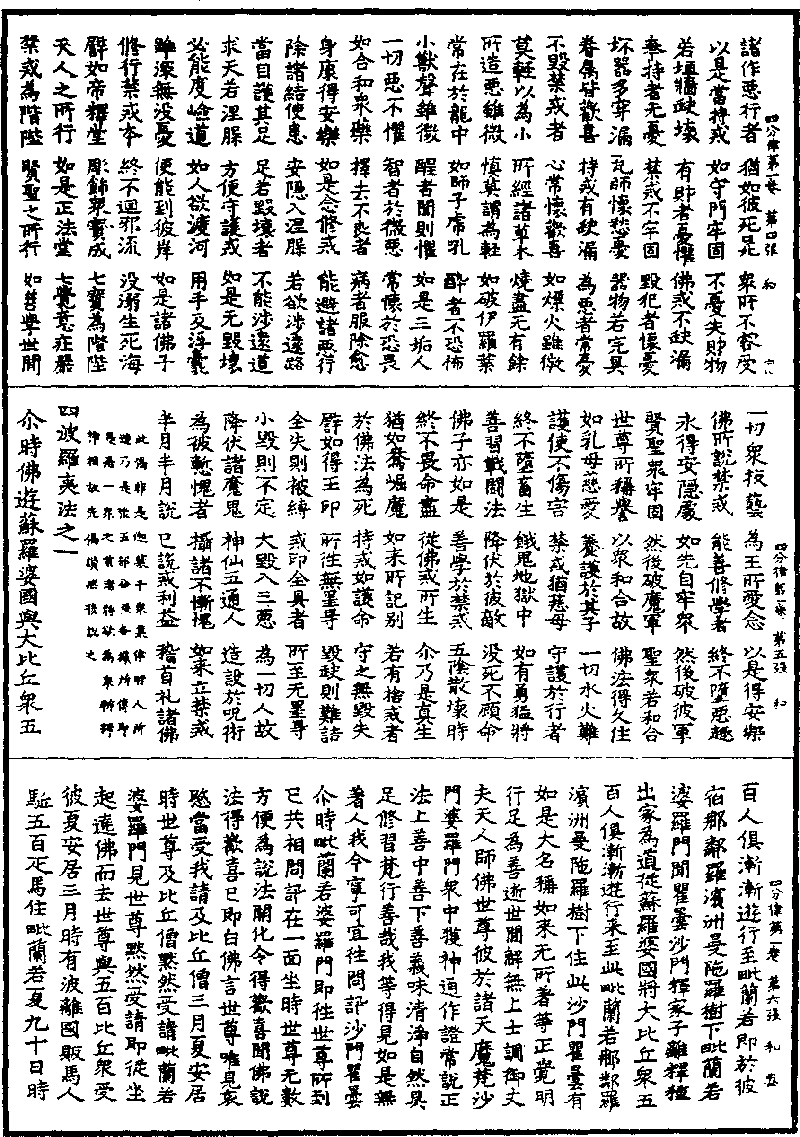 四分律第一卷 第四張 和
諸作惡行者 猶如彼死屍 衆所不容受
以是當持戒 如守門牢固 不憂失財物
若垣牆缺壞 有財者憂懼 佛戒不缺漏
奉持者无憂 禁戒不牢固 毀犯者懷憂
坏器多穿漏 瓦師懷愁憂 器物若完具
眷屬皆歡喜 持戒有缺漏 為惡者常憂
不毀禁戒者 心常懷歡喜 如㸌火雖微
莫輕以為小 所經諸草木 燒盡无有餘
所造惡雖微 慎莫謂為輕 如破伊羅葉
常在於龍中 如師子虎吼 醉者不恐怖
小獸聲雖微 醒者聞則懼 如是三垢人
一切惡不懼 智者於微惡 常懷於恐畏
如合和衆藥 擇去不良者 病者服除愈
身康得安樂 如是念修戒 能避諸惡行
除諸結使患 安隱入涅槃 若欲涉遠路
當自護其足 足若毀壞者 不能涉遠道
求天若涅槃 方便守護戒 如是无毀壞
必能度嶮道 如人欲渡河 用手及浮囊
雖深無没憂 便能到彼岸 如是諸佛子
修行禁戒本 終不迴邪流 没溺生死海
譬如帝釋堂 彫飾衆寶成 七寶為階陛
天人之所行 如是正法堂 七覺意莊嚴
禁戒為階陛 賢聖之所行 如善學世間
四分律第一卷 第五張 和
一切衆技藝 為王所愛念 以是得安樂
佛所說禁戒 能善修學者 終不墮惡趣
永得安隱處 如先自牢衆 然後破彼軍
賢聖衆牢固 然後破魔軍 聖衆若和合
世尊所稱譽 以衆和合故 佛法得久住
如乳母慈愛 養護於其子 一切水火難
護使不傷害 禁戒猶慈母 守護於行者
終不墮畜生 餓鬼地獄中 如有勇猛將
善習戰鬪法 降伏於彼敵 没死不顧命
佛子亦如是 善學於禁戒 五陰散壞時
終不畏命盡 從佛戒所生 尒乃是真生
猶如鴦崛魔 如來所記別 若有捨戒者
於佛法為死 持戒如護命 守之無毀失
譬如得王印 所往無罣㝵 毀缺則難詰
全失則被縛 戒印全具者 所至无罣㝵
小毀則不定 大毀入三惡 為一切人故
降伏諸魔鬼 神仙五通人 造設於呪術
為彼慙愧者 攝諸不慚愧 如來立禁戒
半月半月說 已說戒利益 稽首礼諸佛
此偈非是迦葉千衆集律時人所
造乃是後五部分張各據所傳即
是居一衆之首者將欲為衆辯釋
律相故先偈讚然後說之
四波羅夷法之一
尒時佛遊蘇羅婆國與大比丘衆五
四分律第一卷 第六張 和
百人俱漸漸遊行至毗蘭若即於彼
宿那鄰羅濱洲曼陁羅樹下毗蘭若
婆羅門聞瞿曇沙門釋家子離釋種
出家為道從蘇羅婆國將大比丘衆五
百人俱漸漸遊行來至此毗蘭若那鄰羅
濱洲曼陁羅樹下住此沙門瞿曇有
如是大名稱如來无所著等正覺明
行足為善逝世間解無上士調御丈
夫天人師佛世尊彼於諸天魔梵沙
門婆羅門衆中獲神通作證常說正
法上善中善下善義味清淨自然具
足修習梵行善哉我等得見如是無
著人我今寧可宜往問訊沙門瞿曇
尒時毗蘭若婆羅門即往世尊所到
已共相問訊在一面坐時世尊无數
方便為說法開化令得歡喜聞佛說
法得歡喜已即白佛言世尊唯見哀
愍當受我請及比丘僧三月夏安居
時世尊及比丘僧黙然受請毗蘭若
婆羅門見世尊黙然受請即從坐
起遶佛而去世尊與五百比丘衆受
彼夏安居三月時有波離國販馬人
駈五百疋馬住毗蘭若夏九十日時